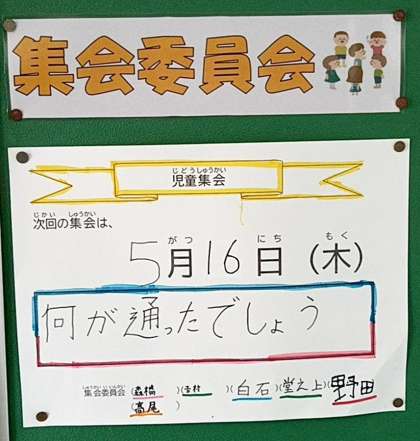 集会委員会
じどうしゅうかい
児童集会
じかい しゅうかい
次回の集会は、
がつ にち もく
5月16日(木)
何が通ったでしょう
しゅうかい いいんかい
集会委員会(森橋)(吉村)(白石)(堂之上)(野田)
(高尾)